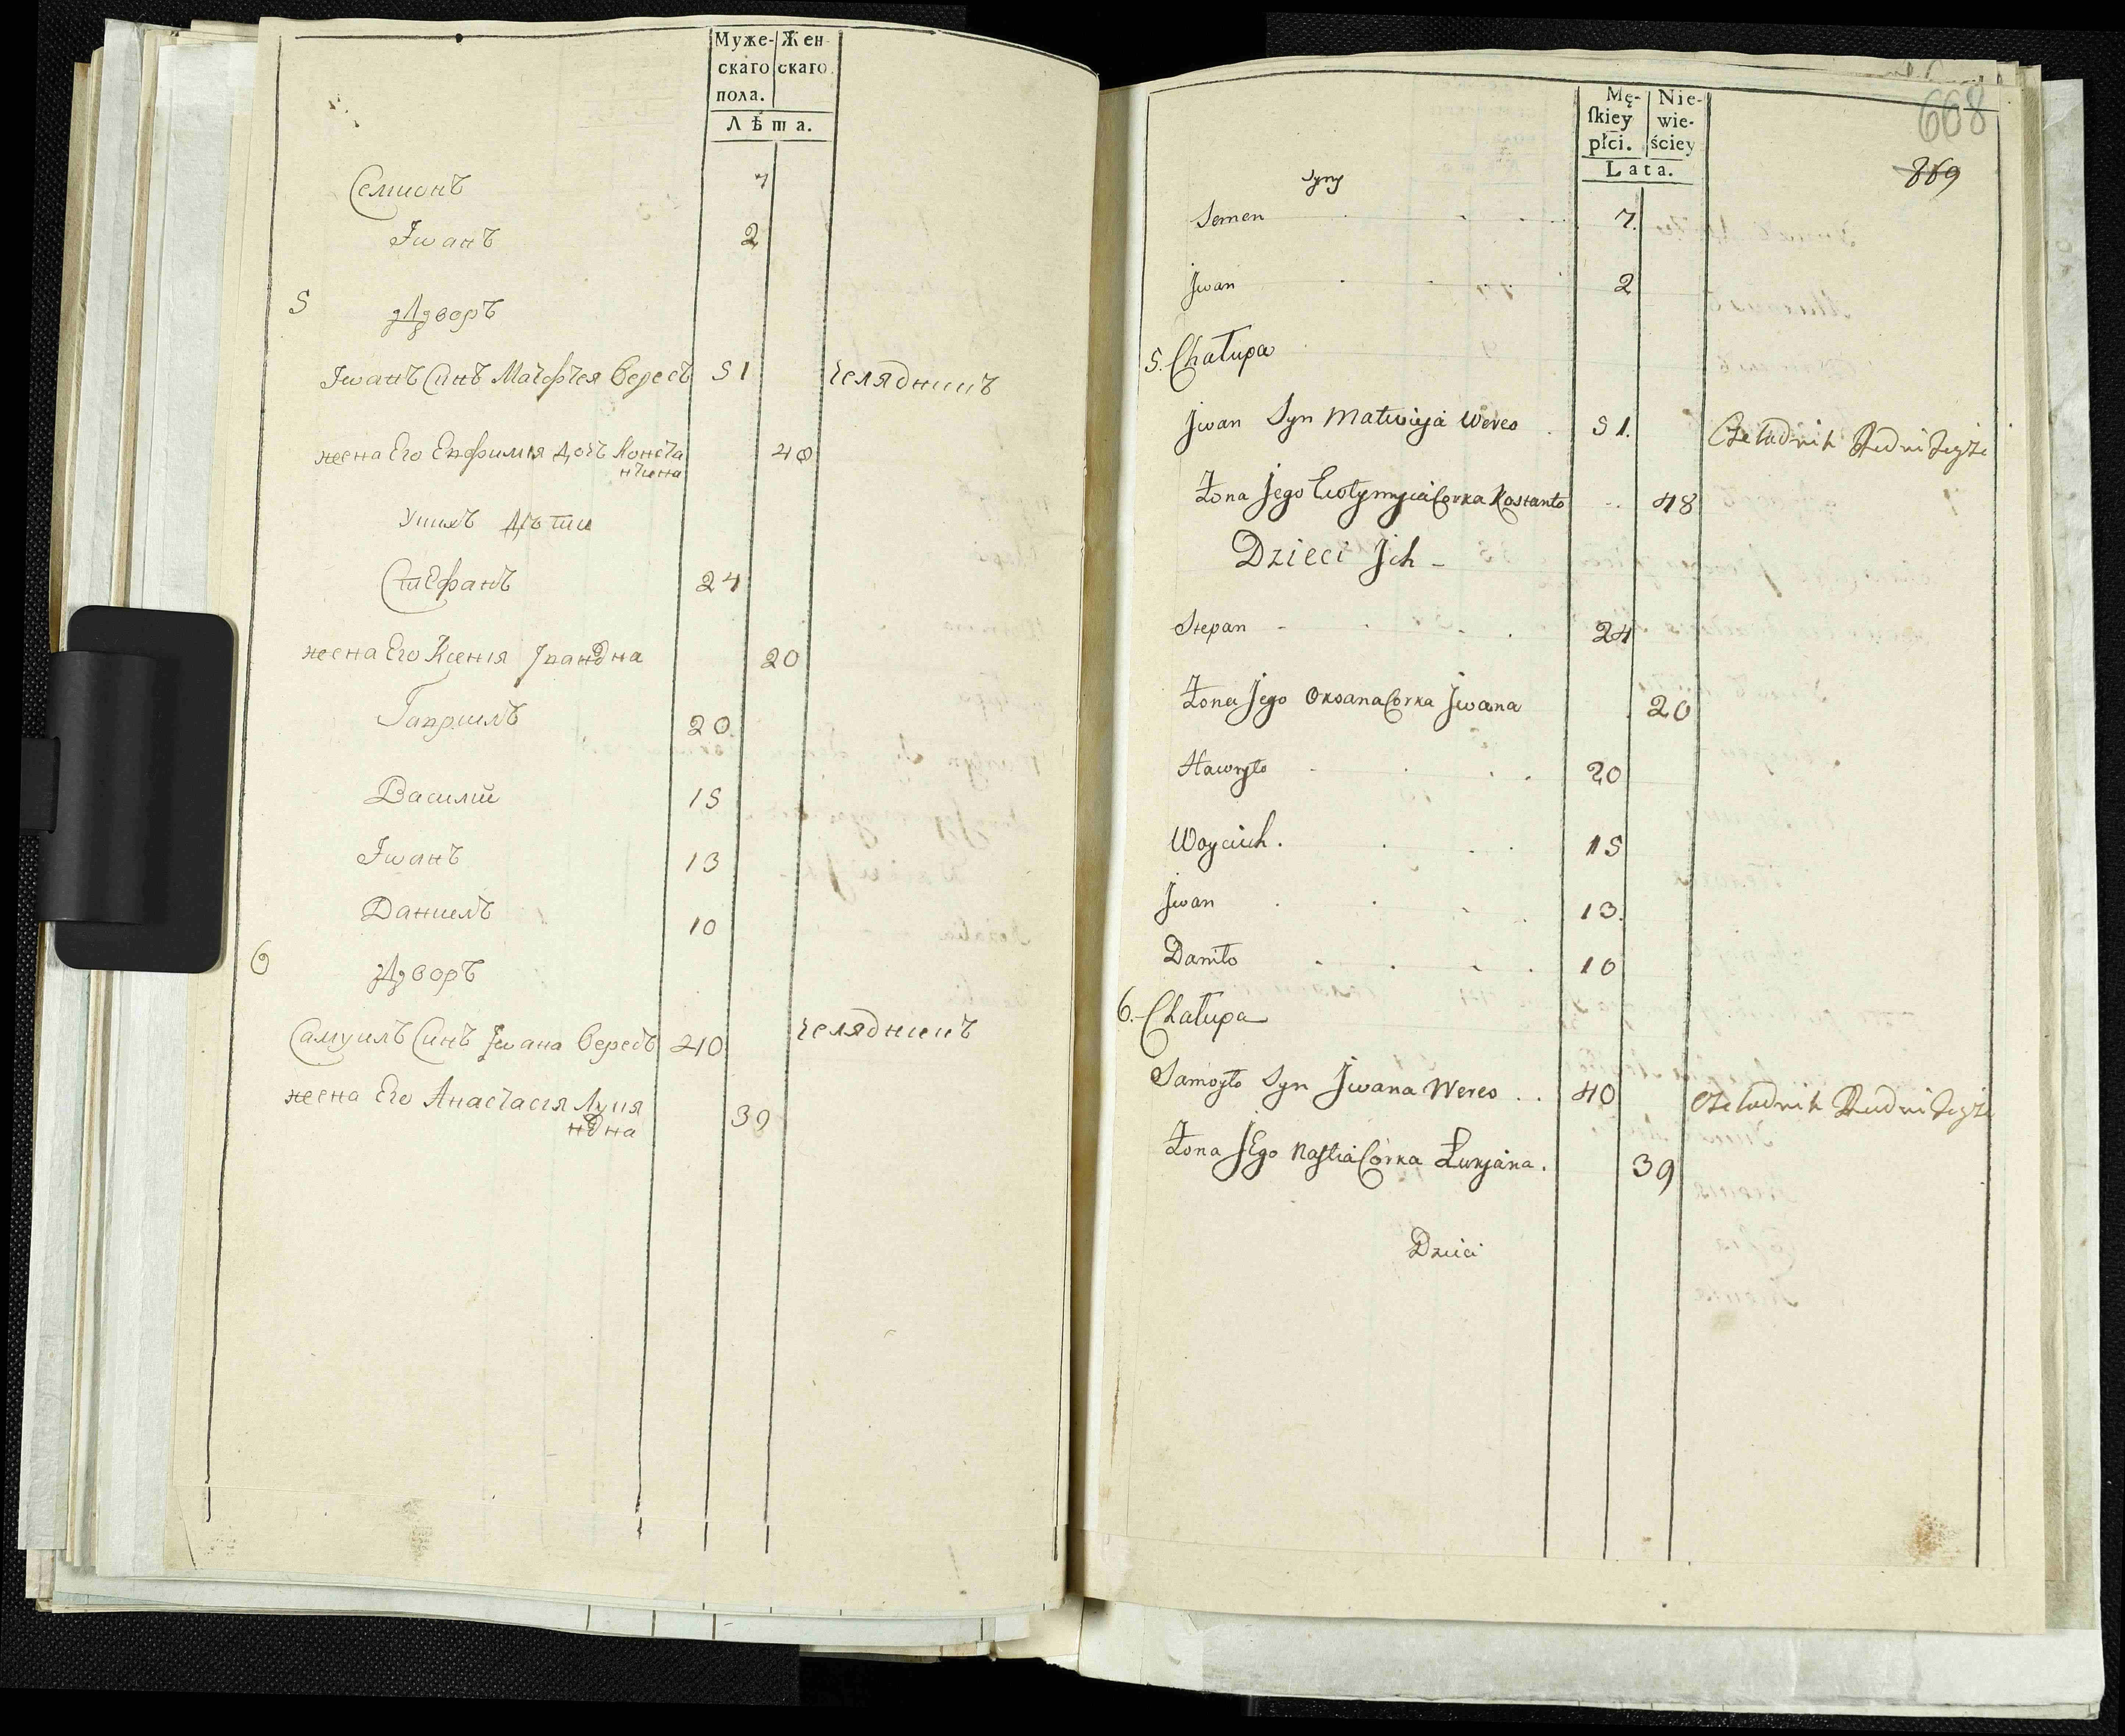 Муже- Жен-
скаго скаго
пола.
Лѣта.
Семионъ 7
Іванъ 2
5 Дворъ
Іванъ Синъ Матфѣя Вересъ 51 челядникъ
жена Его Евфимія дочъ Конста 48
нтина
У нихъ Дѣти
Стефанъ 24
жена Его Ксенія Іванόвна 20
Гавриилъ 20
Василій 15
Іванъ 13
Даниилъ 10
6 Дворъ
Самуилъ Синъ Івана Вересъ 40 челядникъ
жена Его Анастасія Лукія 39
нόвна
Mę- Nie-
skiey wie-
płci. ściey
Lata.
668
869
Syny
Semen 7.
Jwan 2
5. Chałupa
Jwan Syn Matwieja Weres 51. Czeladnik
Żona Jego Ewfymyia Corka Kostanto 48
Dzieci Jch
Stepan 24
Żona Jego Oxsana Corka Jwana 20
Hawryło 20
Woyciech. 15
Jwan 13.
Daniło 10
6. Chałupa
Samoyło Syn Jwana Weres .. 40 Czeladnik
Żona JEgo Nastia Córka Łukjana. 39
Dzieci